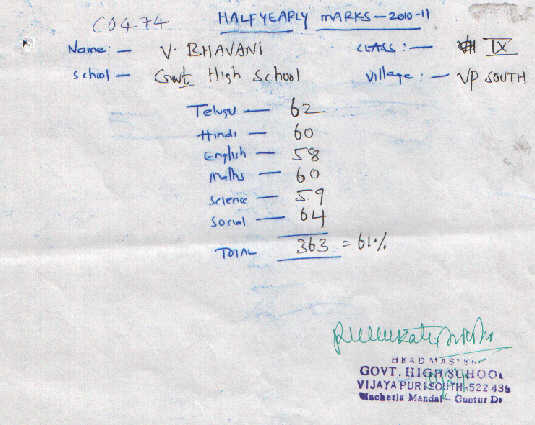 C04-74 HALFYEARLY MARKS - 2010-11
Name: - V. BHAVANI CLASS: - IX
School - Govt. High School Village: - VP SOUTH
Telugu - 62
Hindi - 60
English - 58
Maths - 60
Science - 59
Social - 64
TOTAL 363 = 61%
HEADMASTER
GOVT. HIGH SCHOOL
VIJAYAPURI SOUTH-522 439
Macherla Mandal - Guntur Dt